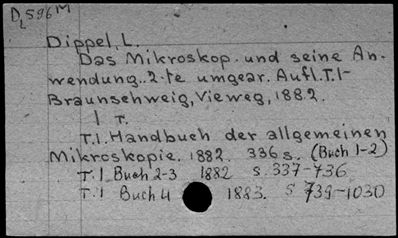 D2596M
Dippel, L.
Das Mikroskop. und seine An-
wendung.. 2-te umgear. Aufl. T.1-
Braunschweig, Vieweg, 1882.
1 T.
T.1. Handbuch der allgemeinen
Mikroskopie. 1882. 336 s. (Buch 1-2)
T.1 Buch 2-3 1882 S. 337-736
T.1 Buch 4 1883. S 739-1030